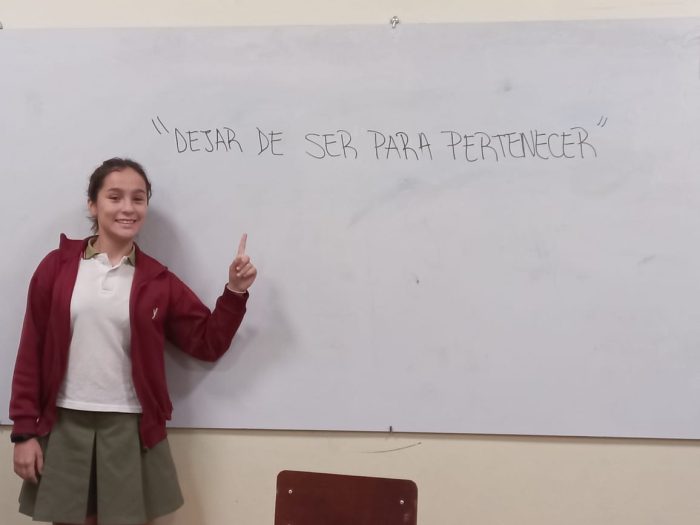 "DEJAR DE SER PARA PERTENECER"